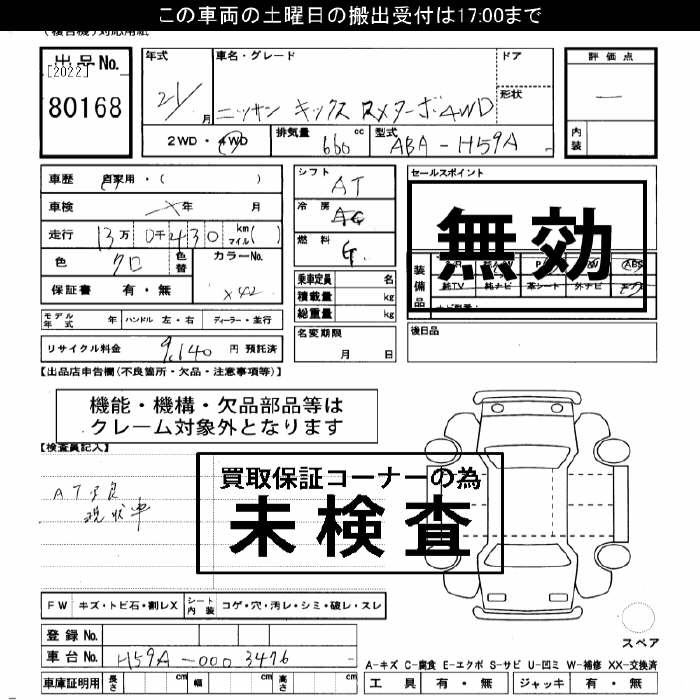 この車両の土曜日の搬出受付は17:00まで
出品No.
[2022]
80168
年式
21
月
車名・グレード
ニッサン キックス RXターボ 4WD
ドア
形状
評価点
内装
2WD・4WD
排気量
660 cc
型式
ABA-H59A
車歴 自家用・( )
車検 ×年 月
走行 13万 0千 430 km マイル( )
色 クロ 色替
カラーNo.
X42
保証書 有・無
モデル年式 年 ハンドル 左・右 ディーラー・並行
リサイクル料金 9,140 円 預託済
シフト AT
冷房 AC
燃料 G.
乗車定員 名
積載量 kg
総重量 kg
名変期限
月 日
セールスポイント
無効
装備品
純TV 純ナビ 革シート 外ナビ
後日品
【出品店申告欄(不良箇所・欠品・注意事項等)】
機能・機構・欠品部品等は
クレーム対象外となります
【検査員記入】
AT不良
現状車
買取保証コーナーの為
未検査
FW キズ・トビ石・割レX シート内装 コゲ・穴・汚レ・シミ・破レ・スレ
登録No.
車台No. H59A-000 3476
車庫証明用 長さ cm 幅 cm 高さ cm
スペア
A-キズ C-腐食 E-エクボ S-サビ U-凹ミ W-補修 XX-交換済
工具 有・無 ジャッキ 有・無